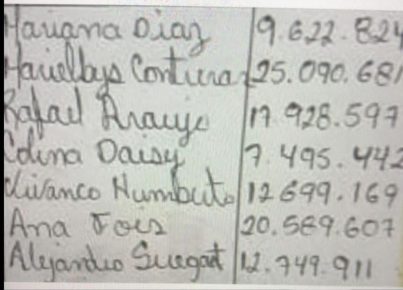 Mariana Diaz 9.622.824
Marielbys Contreras 25.090.681
Rafael Araujo 17.928.597
Colina Daisy 7.495.442
Olivanco Humberto 12699.169
Ana Fois 20.569.607
Alejandro 12.749.911